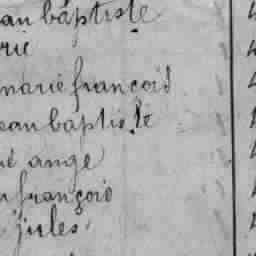 an baptiste
rie
marie françois
ean baptiste
ange
françois
jules